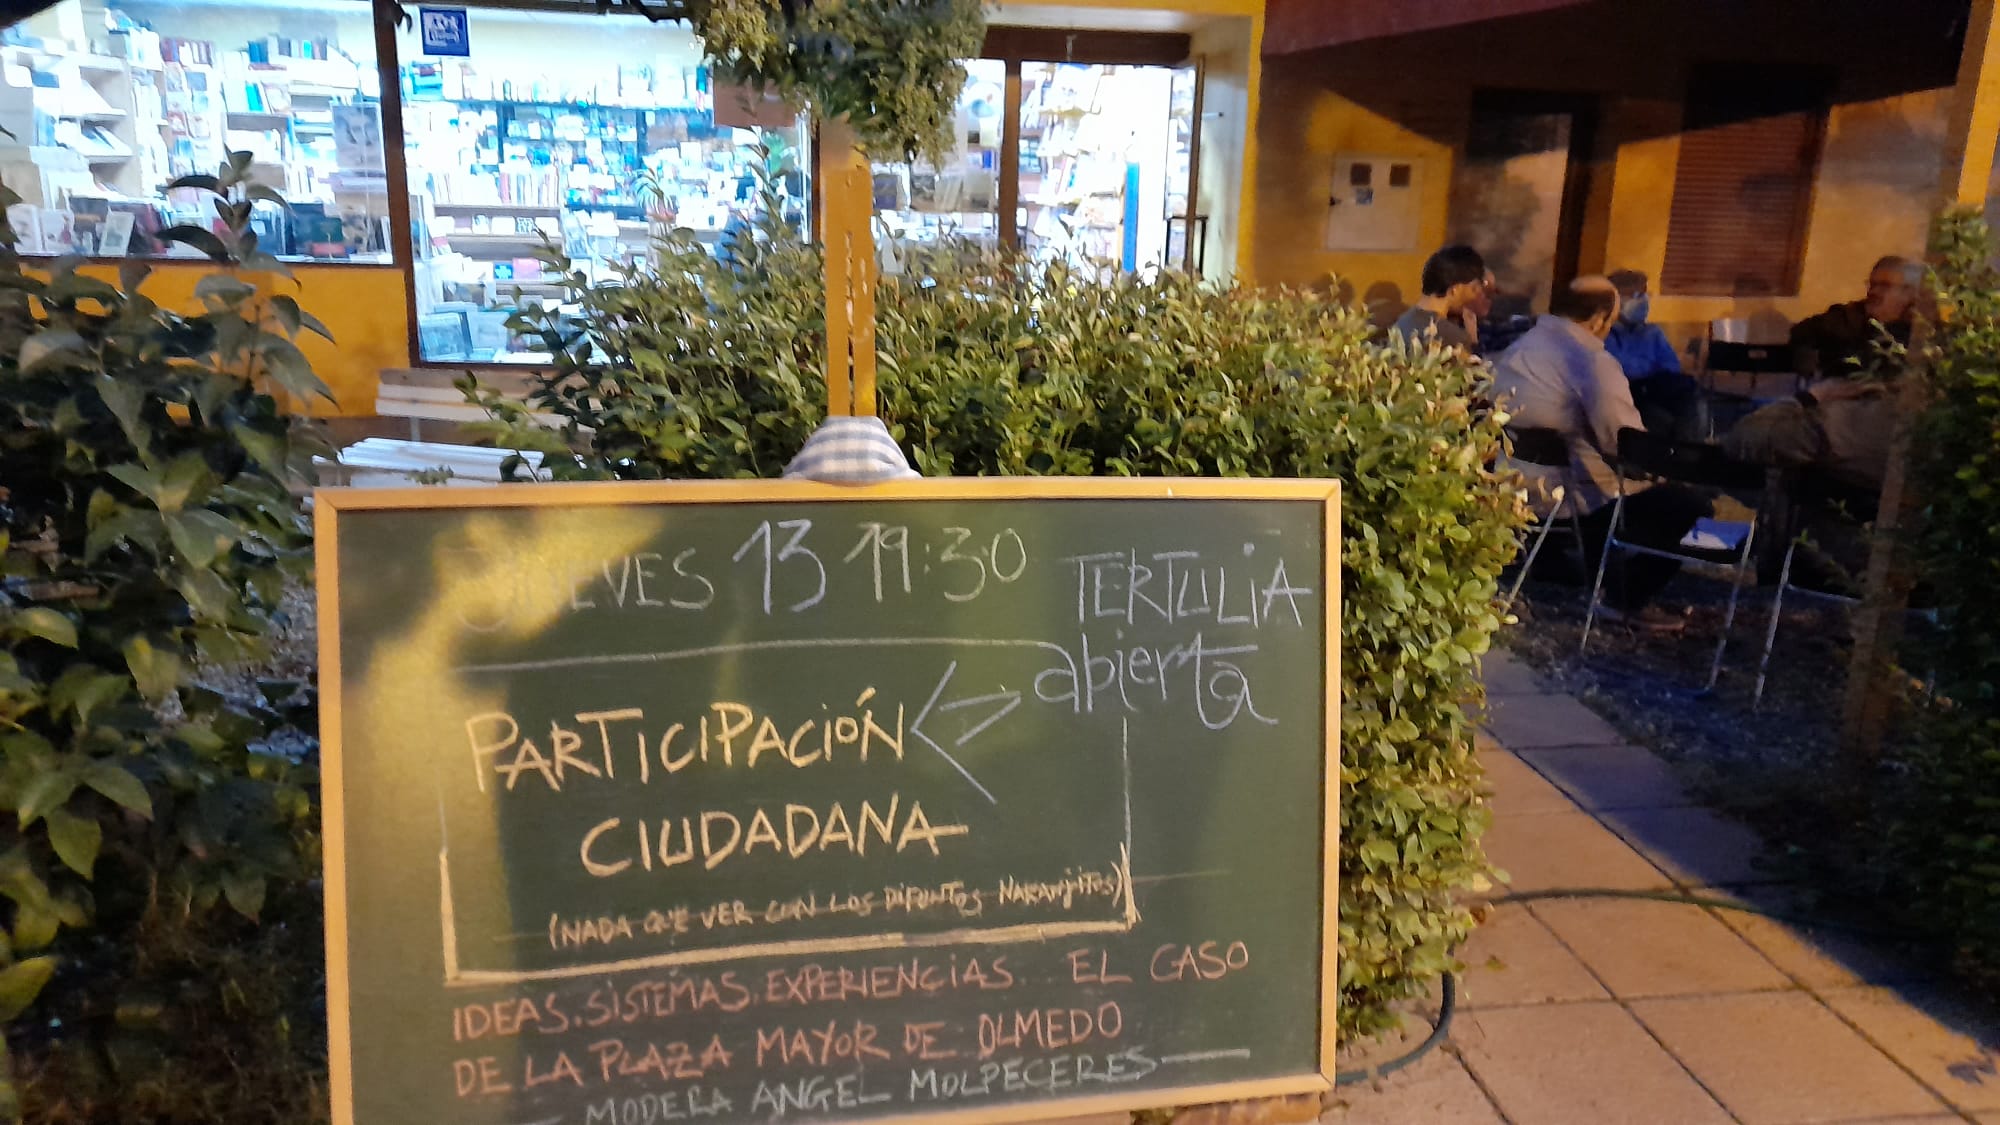 JUEVES 13 19:30 TERTULIA
abierta
PARTICIPACIÓN
CIUDADANA
(NADA QUE VER CON LOS DIFUNTOS NARANJITOS)
IDEAS. SISTEMAS. EXPERIENCIAS... EL CASO
DE LA PLAZA MAYOR DE OLMEDO
MODERA ANGEL MOLPECERES